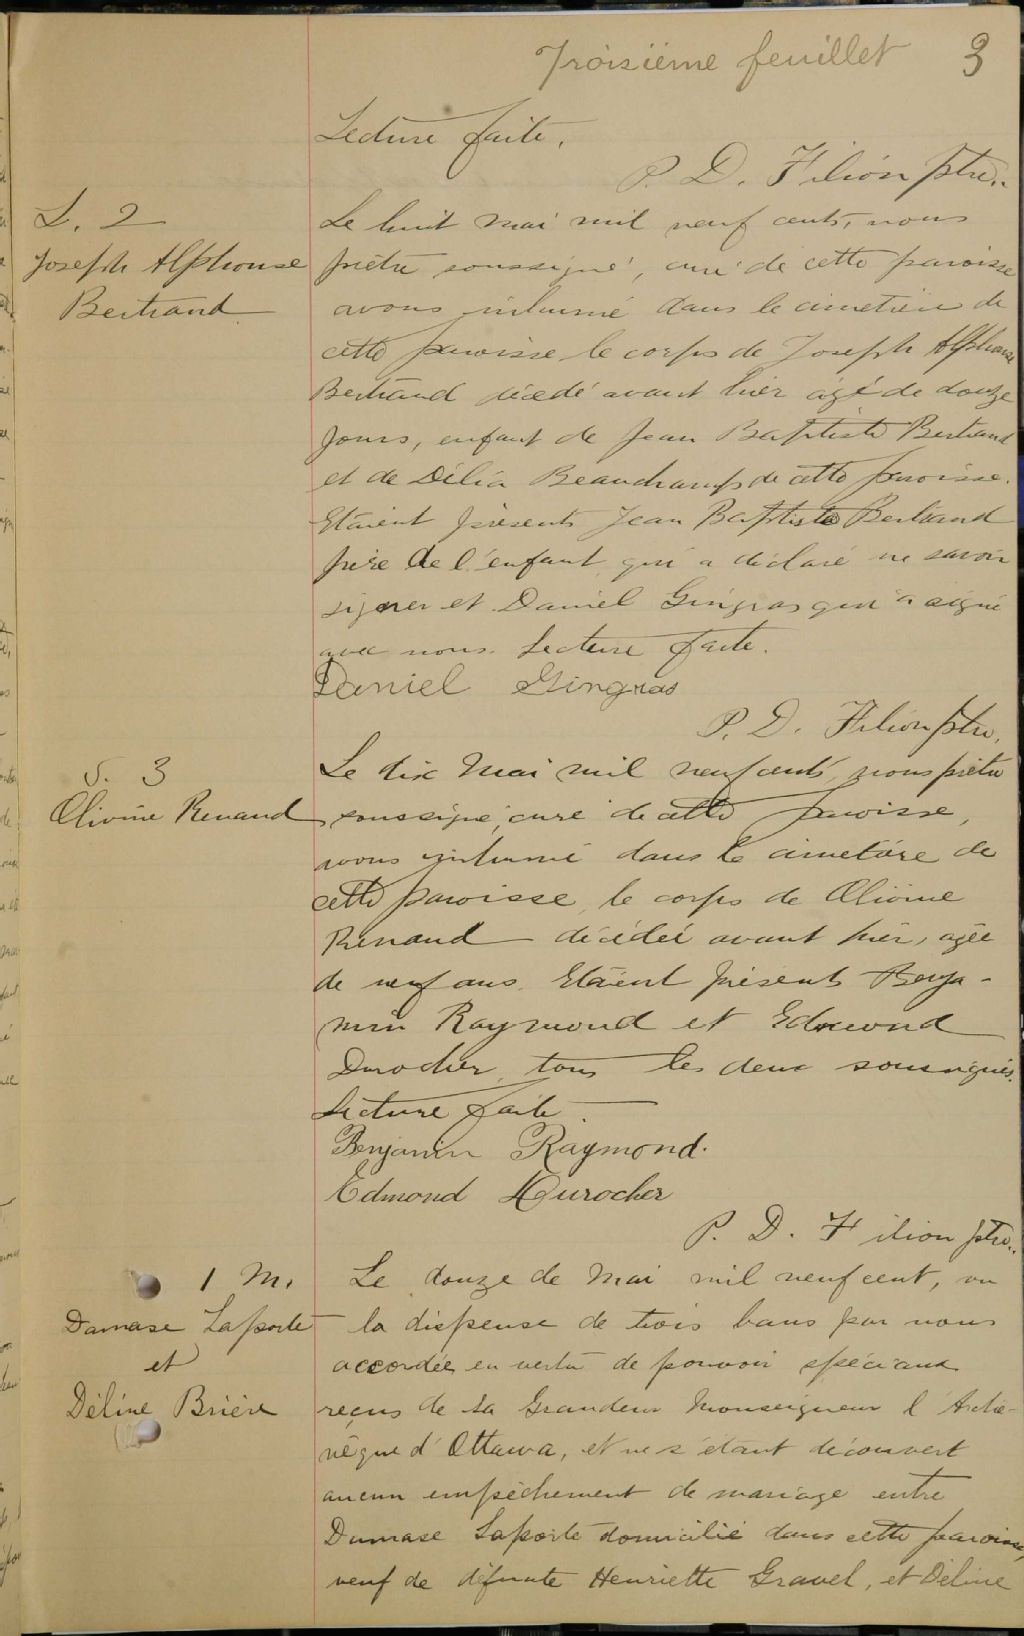 Troisième feuillet 3
Lecture faite.
P. D. Filion ptre.
S. 2
Joseph Alphonse
Bertrand
Le huit mai mil neuf cents, nous
prêtre soussigné, curé de cette paroisse
avons inhumé dans le cimetière de
cette paroisse le corps de Joseph Alphonse
Bertrand décédé avant hier agé de douze
jours, enfant de Jean Baptiste Bertrand
et de Délia Beauchamps de cette paroisse.
Etaient présents Jean Baptiste Bertrand
père de l'enfant qui a déclaré ne savoir
signer et Daniel Gingras qui a signé
avec nous. Lecture faite.
Daniel Gingras
P. D. Filion ptre.
S. 3
Olivine Renaud
Le dix Mai mil neuf cents, nous prêtre
soussigné, curé de cette paroisse,
avons inhumé dans le cimetière de
cette paroisse, le corps de Olivine
Renaud décédée avant hier, agée
de neuf ans. Etaient présents Benja-
min Raymond et Edmond
Durocher tous les deux soussignés.
Lecture faite.
Benjamin Raymond.
Edmond Durocher
P. D. Filion ptre.
1 M.
Damase Laporte
et
Déline Brière
Le douze de Mai mil neuf cent, vu
la dispense de trois bans par nous
accordée en vertu de pouvoir spéciaux
reçus de Sa Grandeur Monseigneur l'Arche-
vêque d'Ottawa, et ne s'étant découvert
aucun empêchement de mariage entre
Damase Laporte domicilié dans cette paroisse,
veuf de défunte Henriette Gravel, et Déline